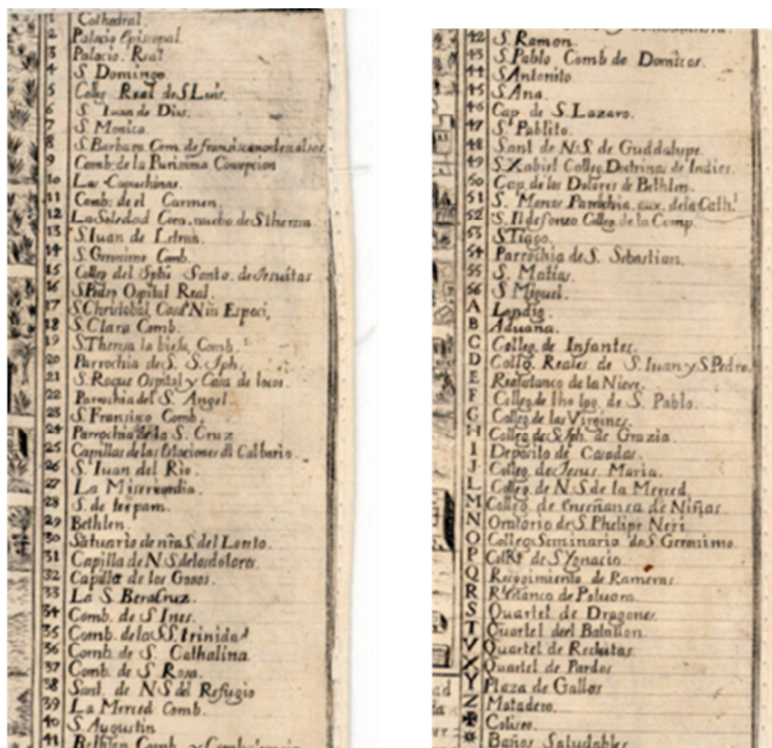 1 Cathedral.
2 Palacio Episcopal.
3 Palacio. Real
4 S. Domingo.
5 Colleg Real de S Luis.
6 S. Iuan de Dios.
7 S. Monica.
8 S. Barbara Com. de franciscanos descalsos.
9 Comb. de la Purisima Concepcion
10 Las Capuchinas.
11 Comb. de el Carmen.
12 La Soledad Com. nuebo de S theresa
13 S. Iuan de Letran.
14 S. Geronimo Comb.
15 Colleg del Sphu Santo. de Jesuitas
16 S Pedro Ospital Real.
17 S Christobal Casa Nin Esposi,
18 S. Clara Comb.
19 S Theresa la bieja Comb.
20 Parrochia de S. S. Jph.
21 S. Roque Ospital y Casa de locos.
22 Parrochia del S. Angel.
23 S. Fransisco Comb.
24 Parrochia de la S. Cruz
25 Capillas de las Estaciones dl Calbario.
26 S. Iuan del Rio.
27 La Misericordia.
28 S. de tecpam.
29 Bethlen.
30 Satuario de nra S. del Loreto.
31 Capilla de N S de los dolores.
32 Capilla de los Gosos.
33 La S. Bera Cruz.
34 Comb. de S Ines.
35 Comb. de la SS. trinidad
36 Comb. de S. Cathalina.
37 Comb. de S. Rosa.
38 Sant. de N S del Refugio
39 La Merced Comb.
40 S. Augustin
41 Bethlen Comb. y
42 S. Ramon.
43 S. Pablo Comb de Domicos.
44 S Antonito
45 S Ana.
46 Cap. de S. Lazaro.
47 S. Pablito.
48 Sant de N S de Guadalupe.
49 S. Xabiel Colleg Doctrinas de Indios.
50 Cap. de los Dolores de Bethlem.
51 S. Marcos Parrochia aux. de la Cath.
52 S. Ildefonzo Colleg. de la Comp.
53 S. Tiago.
54 Parrochia de S. Sebastian.
55 S. Matias.
56 S Miguel.
A
B Aduana.
C Colleg. de Infantes.
D Colleg. Reales de S. Iuan y S Pedro.
E de la Nieve.
F Colleg. de S. Pablo.
G Colleg. de las Virgines.
H Colleg. de S Jph. de Grazia.
I Deposito de Casadas.
J Colleg. de Jesus Maria.
L Colleg. de N. S. de la Merced.
M Colleg. de Enseñansa de Niñas.
N Oratorio de S. Phelipe Neri.
O Colleg. Seminario de S. Geronimo.
P de S Ygnacio.
Q Recogimiento de Rameras.
R de Poluora.
S Quartel de Dragones.
T Quartel del Batallon.
V Quartel de Reclutas
X Quartel de Pardos
Y Plaza de Gallos
Z Matadero.
✠ Coliseo.
* Baños Saludables